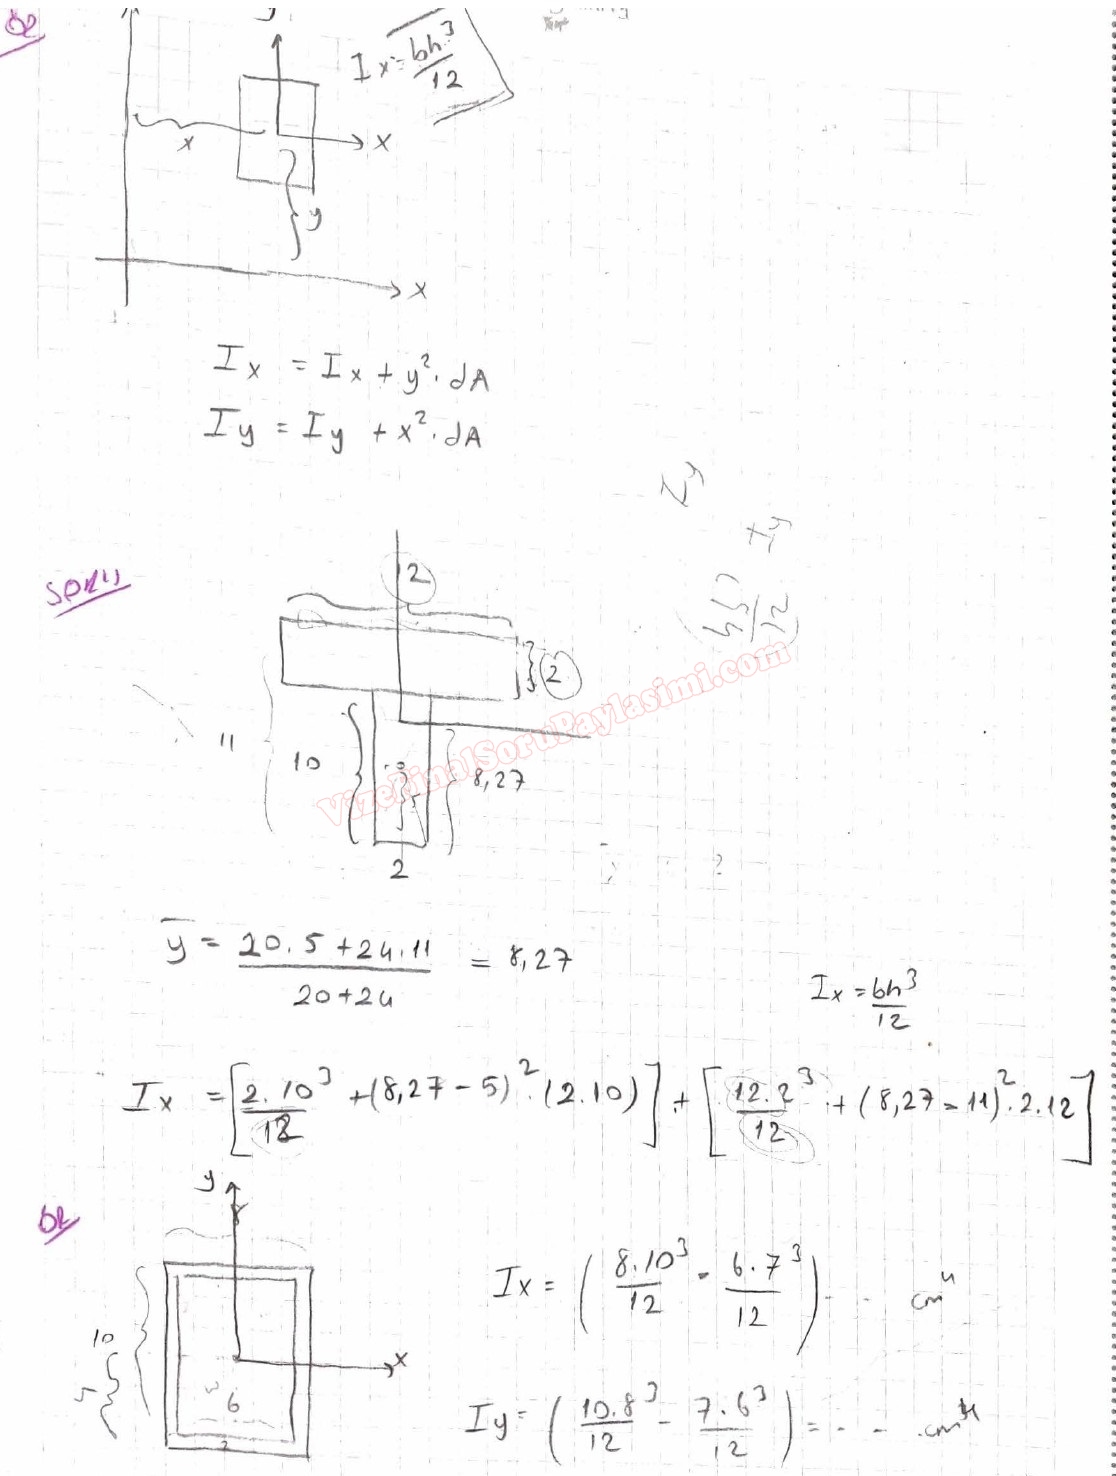 ör
y
Ix = bh³/12
x
x
y
x
Ix = Ix + y². dA
Iy = Iy + x². dA
Iy
Iy
soru
2
2
11
10
8,27
5
2
VizeFinalSoruPaylasimi.com
?
y̅ = (20.5 + 24.11)/(20+24) = 8,27
Ix = bh³/12
Ix = [2.10³/12 + (8,27 - 5)². (2.10)] + [12.2³/12 + (8,27 - 11)². 2.12]
ör
y
Ix = (8.10³/12 - 6.7³/12) - - cm⁴
10
x
6
Iy = (10.8³/12 - 7.6³/12) = - - cm⁴